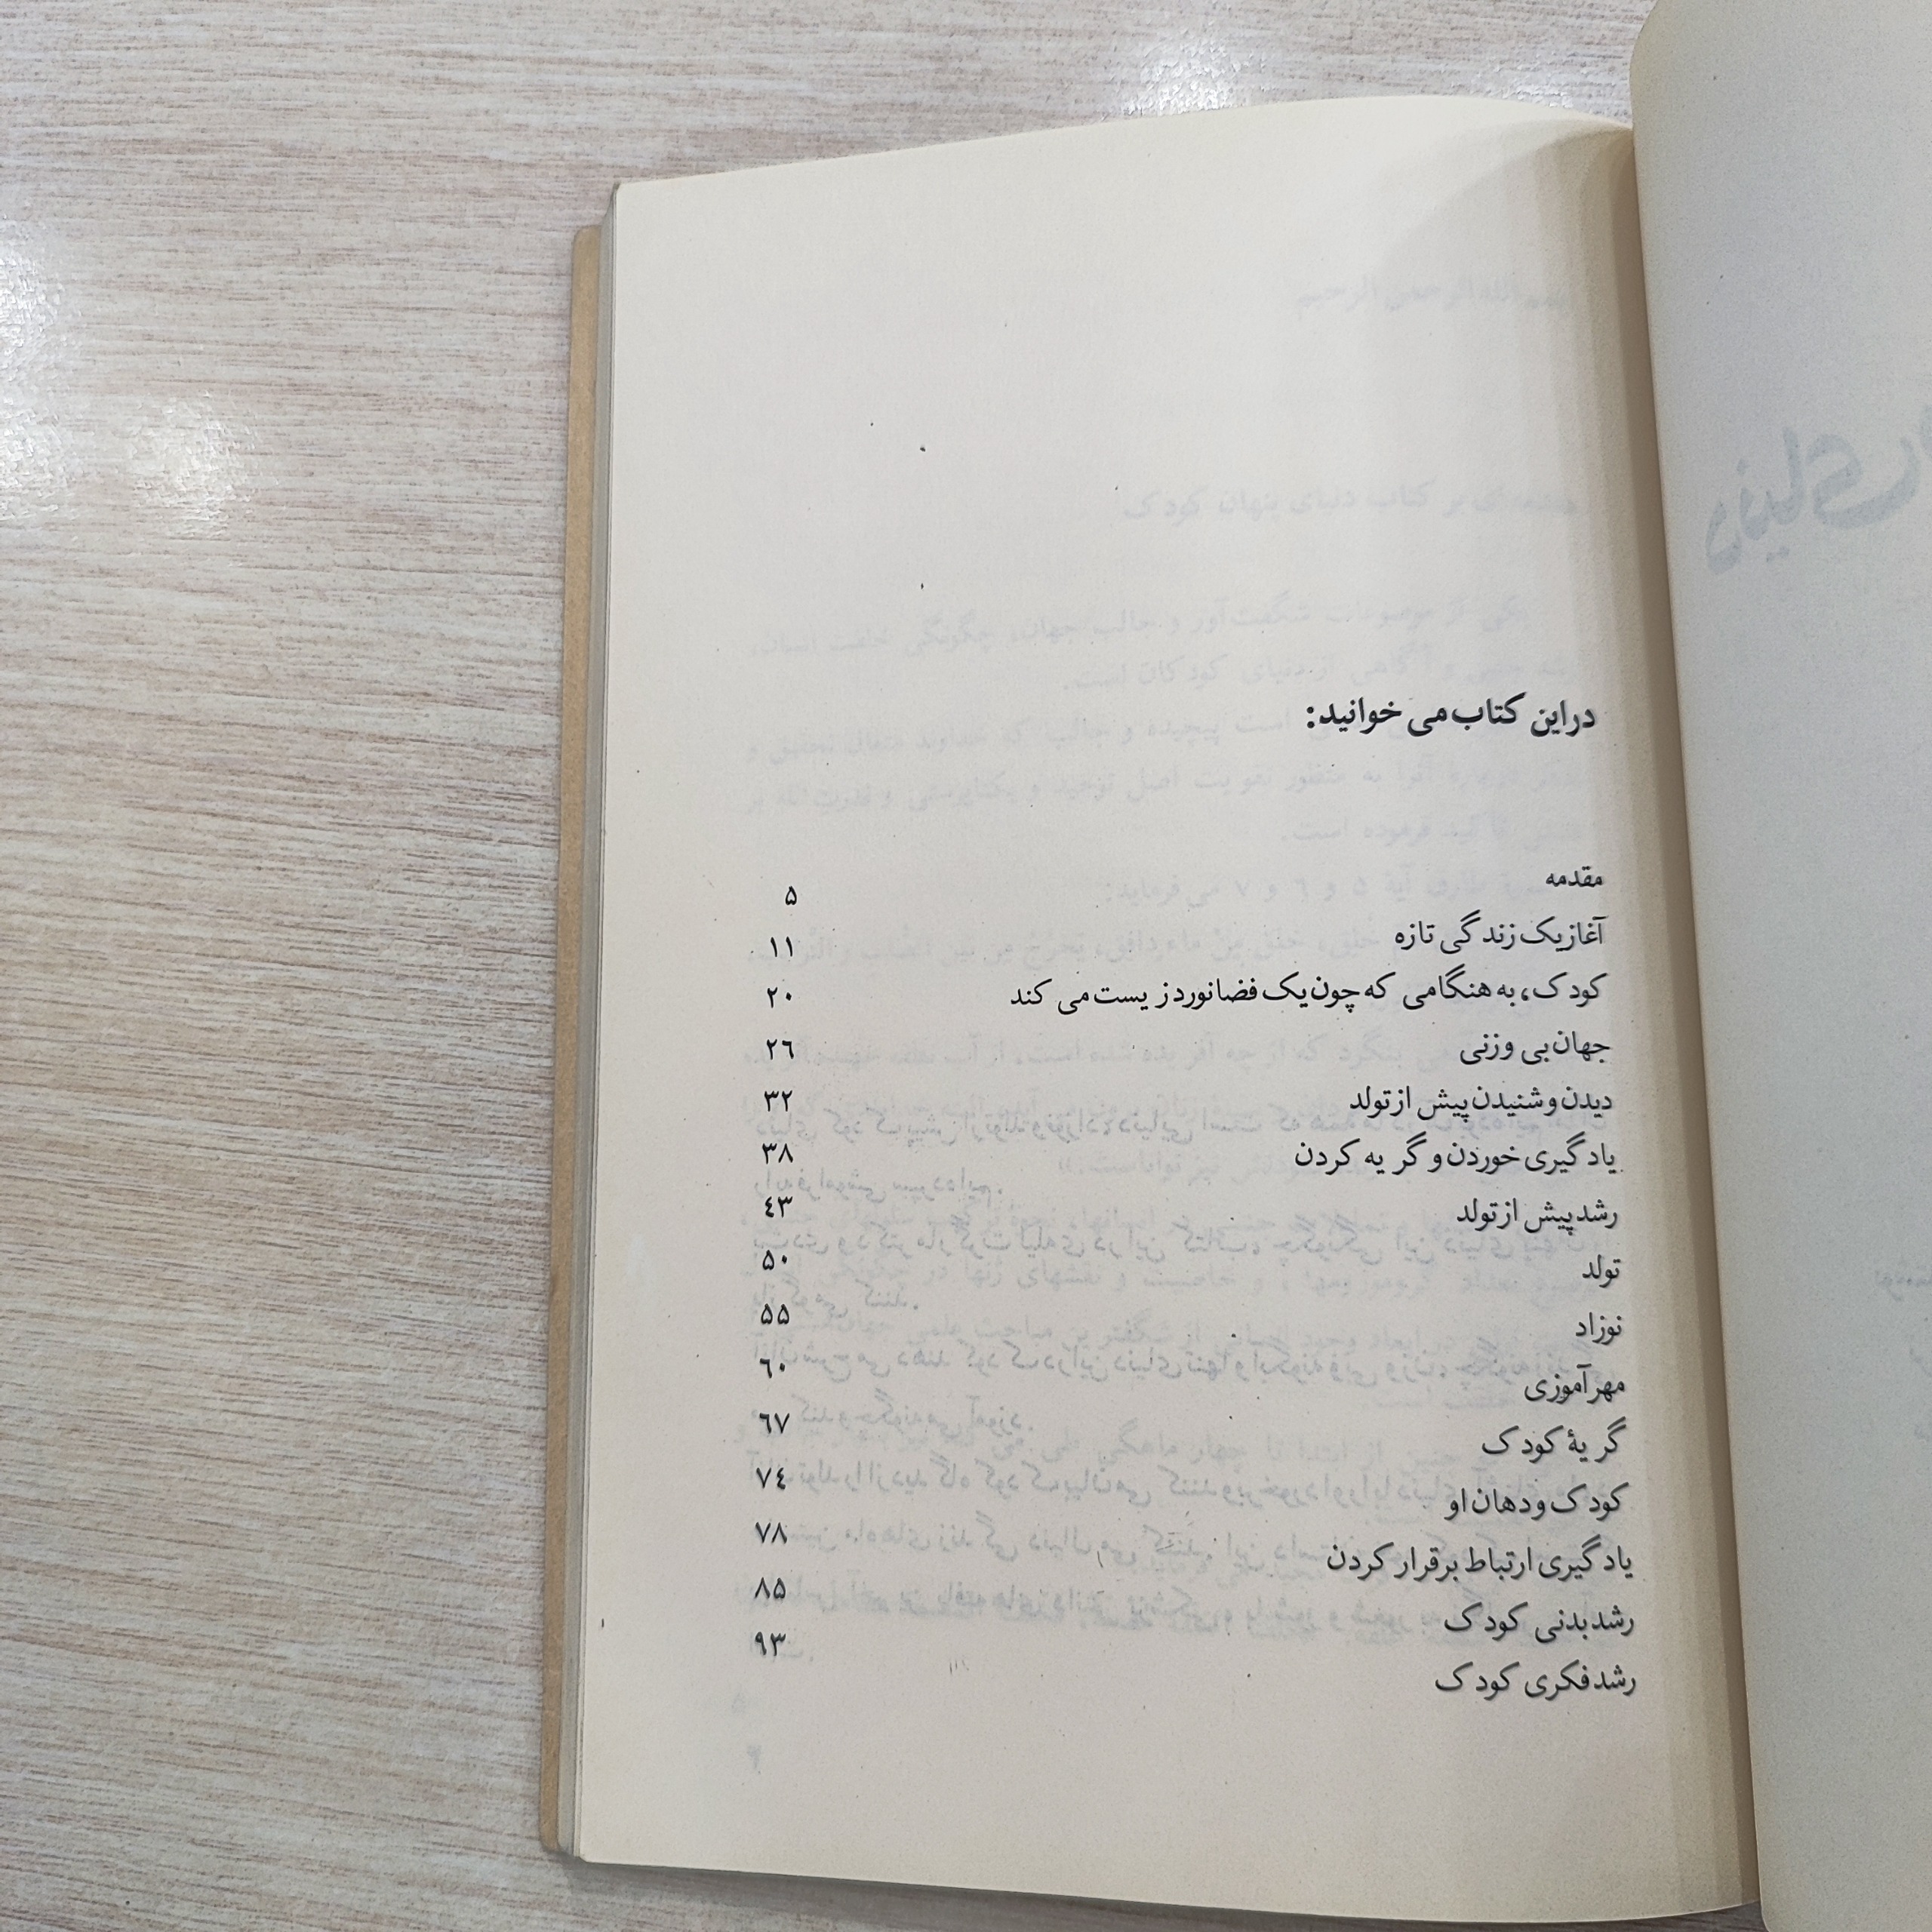 در این کتاب می خوانید:
مقدمه ۵
آغاز یک زندگی تازه ۱۱
کودک، به هنگامی که چون یک فضانورد زیست می کند ۲۰
جهان بی وزنی ۲۶
دیدن و شنیدن پیش از تولد ۳۲
یادگیری خوردن و گریه کردن ۳۸
رشد پیش از تولد ۴۳
تولد ۵۰
نوزاد ۵۵
مهرآموزی ۶۰
گریهٔ کودک ۶۷
کودک و دهان او ۷۴
یادگیری ارتباط برقرار کردن ۷۸
رشد بدنی کودک ۸۵
رشد فکری کودک ۹۳